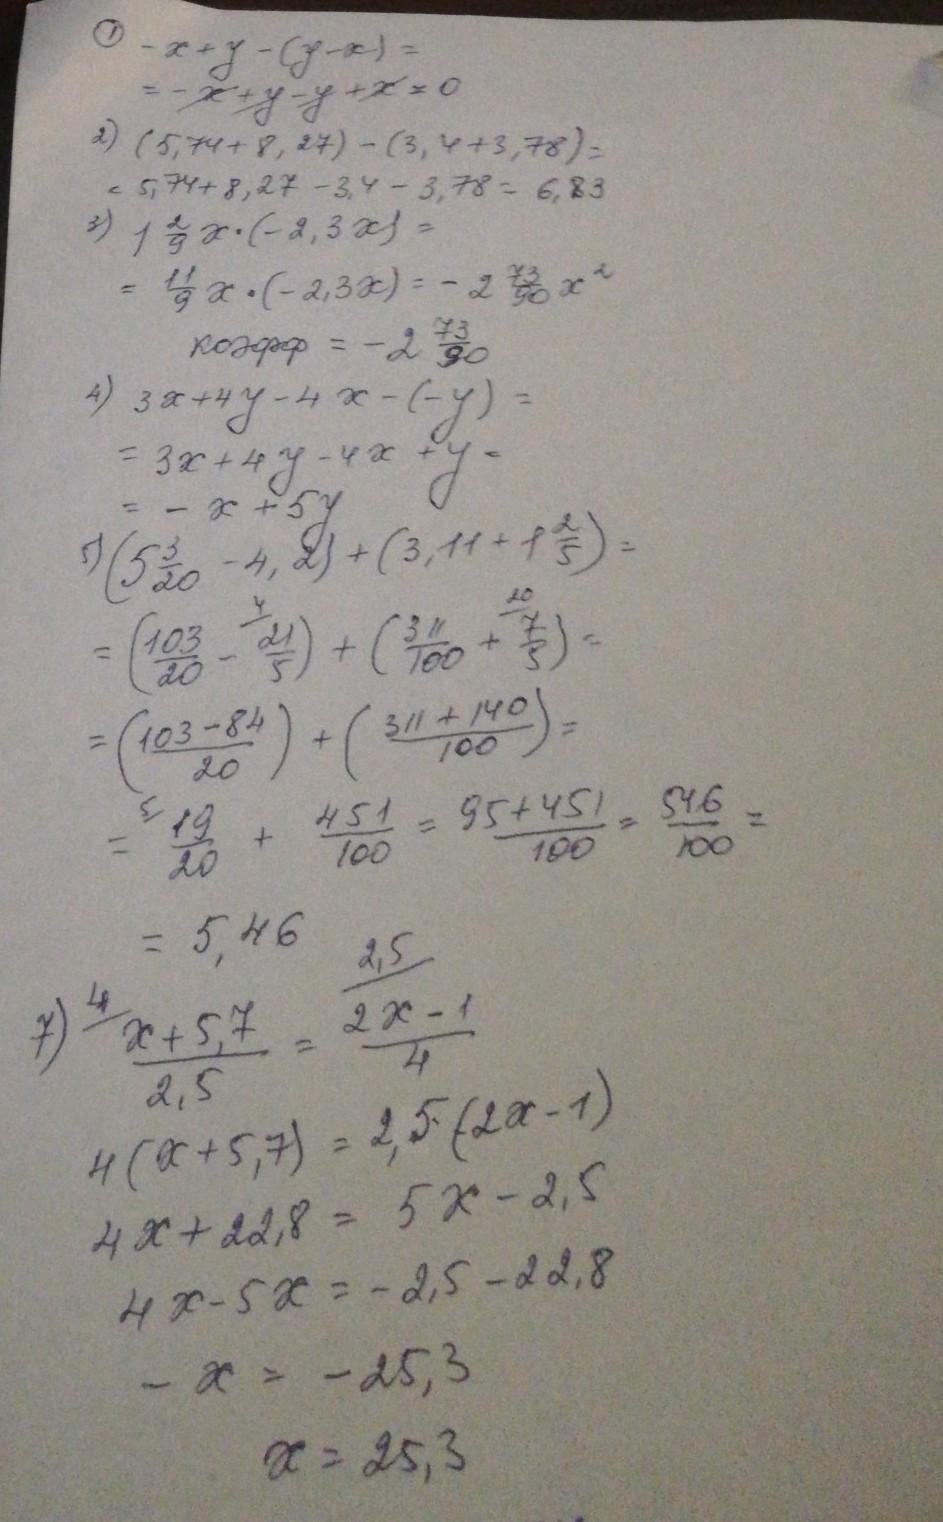 ① -x+y-(y-x)=
=-x+y-y+x=0
2) (5,74+8,27)-(3,4+3,78)=
=5,74+8,27-3,4-3,78=6,83
3) 1 2/9 x·(-2,3x)=
= 11/9 x·(-2,3x)=-2 73/90 x²
коэфф = -2 73/90
4) 3x+4y-4x-(-y)=
= 3x+4y-4x+y=
= -x+5y
5) (5 3/20 - 4,2)+(3,11+1 2/5)=
= (103/20 - 4/ 21/5)+(311/100 + 20/ 7/5)=
= (103-84/20)+(311+140/100)=
= 5/ 19/20 + 451/100 = 95+451/100 = 546/100 =
= 5,46
7) 4/ x+5,7/2,5 = 2,5/ 2x-1/4
4(x+5,7)=2,5·(2x-1)
4x+22,8= 5x-2,5
4x-5x=-2,5-22,8
-x = -25,3
x=25,3